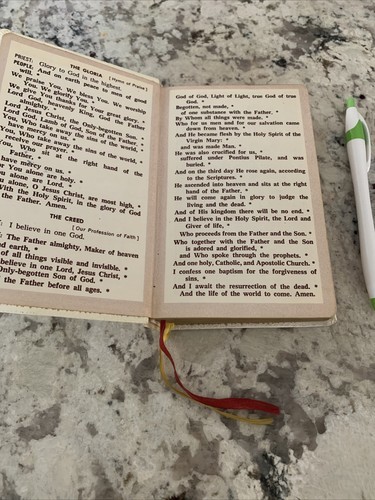 THE GLORIA
[Hymn of Praise]
PRIEST: Glory to God in the highest.
PEOPLE: And on earth peace to men of good
will.
praise You. We bless You. We worship
You. We glorify You. *
We give You thanks for Your great glory. *
Lord God, heavenly King, God the Father
almighty. *
Lord Jesus Christ, the Only-begotten Son. *
Lord God, Lamb of God, Son of the Father. *
You, Who take away the sins of the world,
have mercy on us. *
You, Who take away the sins of the world,
You, Who sit at the right hand of the
Father,
have mercy on us. *
For You alone are holy. *
You alone are Lord. *
You alone, O Jesus Christ, are most high, *
With the Holy Spirit, in the glory of God
the Father. Amen.
THE CREED
[Our Profession of Faith]
I believe in one God.
The Father almighty, Maker of heaven
and earth, *
of all things visible and invisible. *
believe in one Lord, Jesus Christ, *
Only-begotten Son of God. *
the Father before all ages. *
God of God, Light of Light, true God of true
God. *
Begotten, not made, *
of one substance with the Father. *
By Whom all things were made. *
Who for us men and for our salvation came
down from heaven. *
And He became flesh by the Holy Spirit of the
Virgin Mary: *
and was made Man. *
He was also crucified for us, *
suffered under Pontius Pilate, and was
buried. *
And on the third day He rose again, according
to the Scriptures. *
He ascended into heaven and sits at the right
hand of the Father. *
He will come again in glory to judge the
living and the dead. *
And of His kingdom there will be no end. *
And I believe in the Holy Spirit, the Lord and
Giver of life, *
Who proceeds from the Father and the Son. *
Who together with the Father and the Son
is adored and glorified, *
and Who spoke through the prophets. *
And one holy, Catholic, and Apostolic Church. *
I confess one baptism for the forgiveness of
sins, *
And I await the resurrection of the dead. *
And the life of the world to come. Amen.